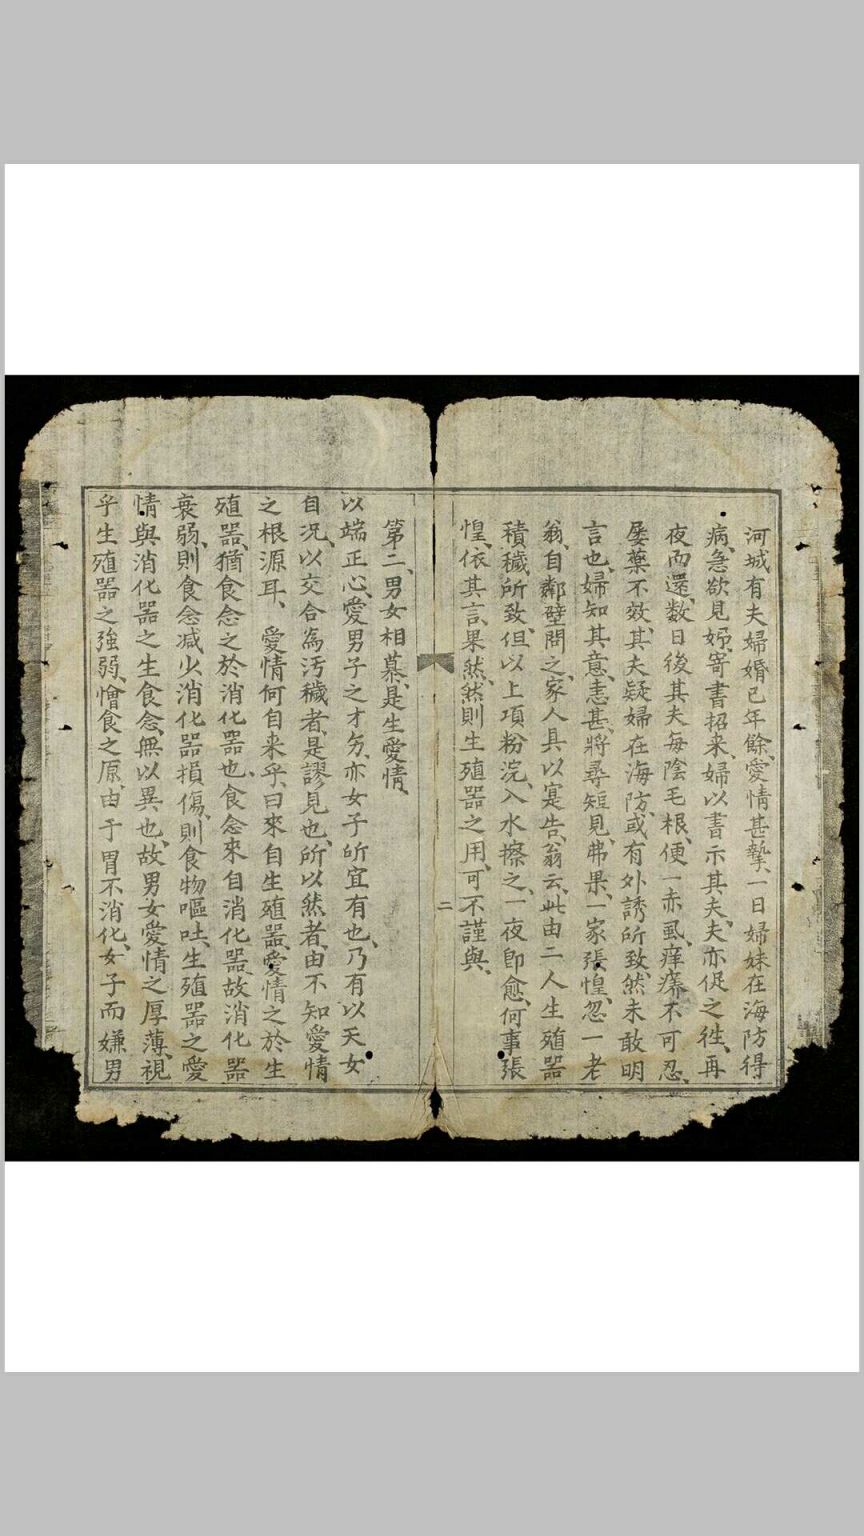 河城有夫婦婚已年餘、愛情甚摯、一日婦妹在海防得
病、急欲見姊、寄書招来、婦以書示其夫、夫亦促之徃、再
夜而還、数日後其夫每陰毛根、便一赤虱、痒瘙不可忍、
屡藥不效、其夫疑婦在海防、或有外誘所致、然未敢明
言也、婦知其意、恚甚、將尋短見、弗果、一家張惶、忽一老
翁、自鄰壁問之、家人具以寔告、翁云、此由二人生殖器
積穢所致、但以上項粉浣、入水擦之、一夜即愈、何事張
惶、依其言、果然、然則生殖器之用、可不謹與、
二
第二、男女相慕、是生愛情、
以端正心、愛男子之才、亦女子所宜有也、乃有以天女
自况、以交合為汚穢者、是謬見也、所以然者、由不知愛情
之根源耳、愛情何自来乎、曰來自生殖器、愛情之於生
殖器、猶食念之於消化器也、食念來自消化器、故消化器
衰弱、則食念减少、消化器損傷、則食物嘔吐、生殖器之愛
情、與消化器之生食念、無以異也、故男女愛情之厚薄、視
乎生殖器之強弱、憎食之原、由于胃不消化、女子而嫌男